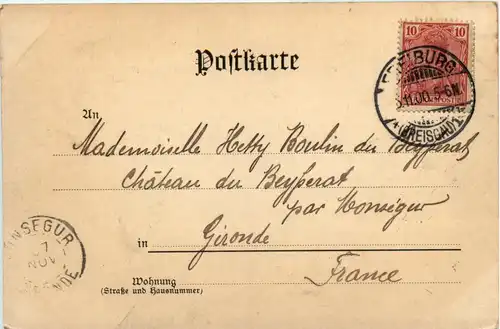 10 10
Postkarte
FREIBURG
5.11.00.5-6N.
(BREISGAU)
An
Mademoiselle Hetty Boulin du Beyperat
Château du Beyperat
par Monségur
in Gironde
France
MONSEGUR
7
NOV
GIRONDE
Wohnung
(Straße und Hausnummer)